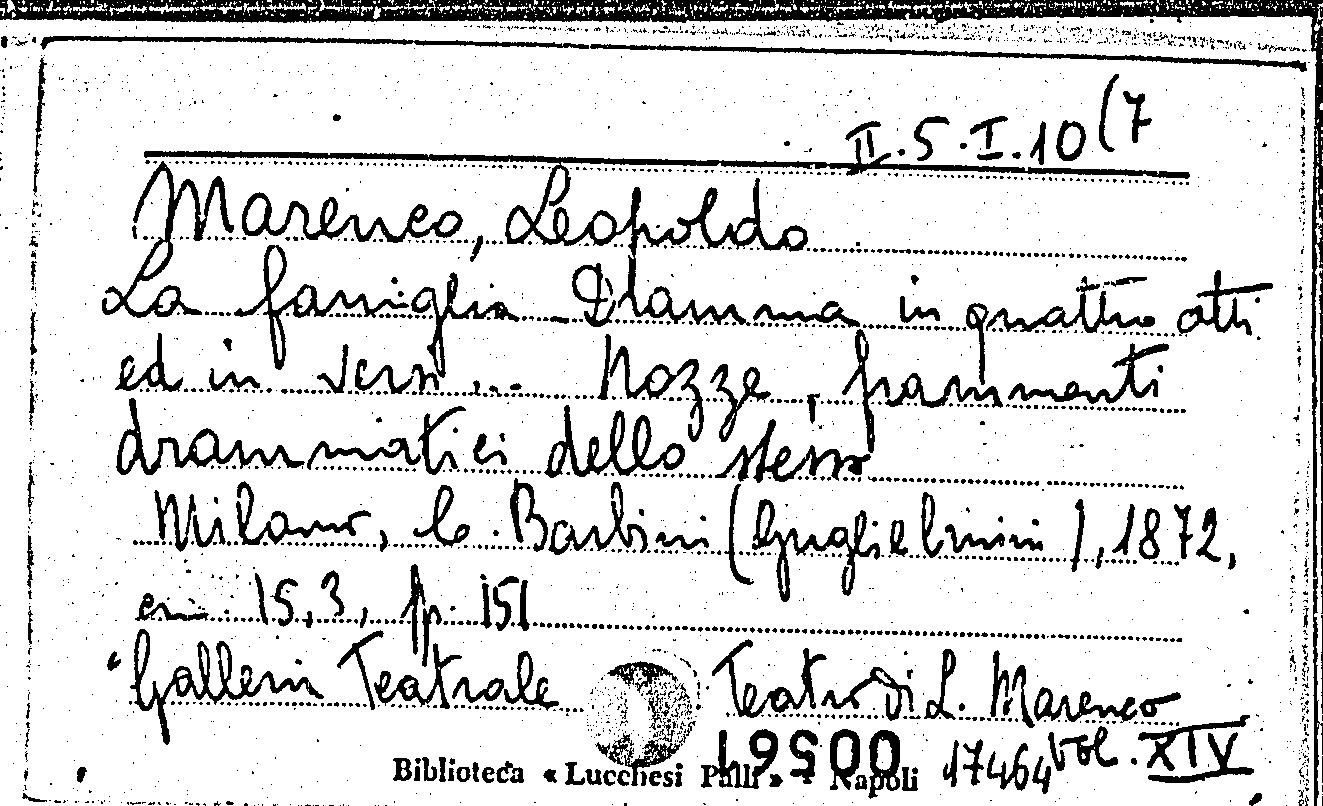 II.5.I.10(7
Marenco, Leopoldo
La famiglia - Dramma in quattro atti
ed in versi ... Nozze, frammenti
drammatici dello stesso
Milano, C. Barbini (Guglielmini), 1872,
cm. 15,3, pp. 151
"Galleria Teatrale Teatro di L. Marenco
17464 Vol. XIV
Biblioteca « Lucchesi Palli » - Napoli